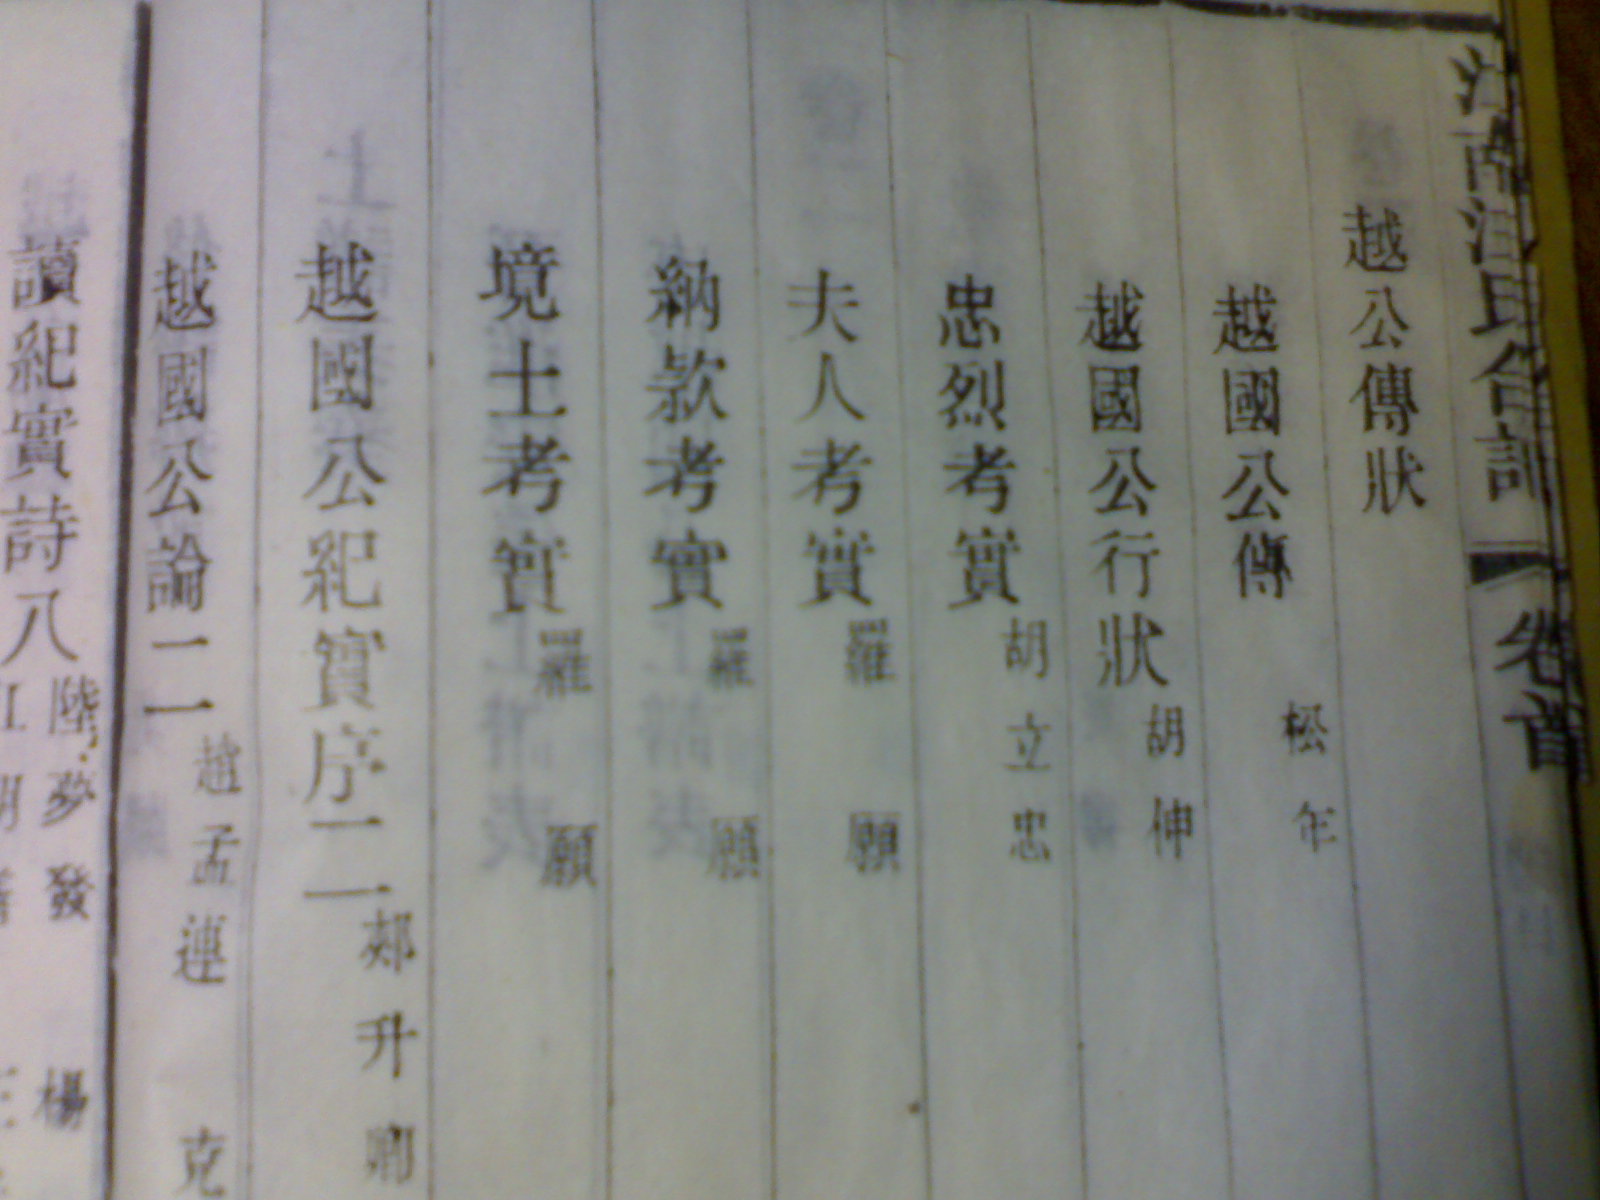 越公傳狀
越國公傳 松年
越國公行狀 胡伸
忠烈考實 胡立忠
夫人考實 羅願
納款考實 羅願
境土考實 羅願
越國公紀實序二 鄭升卿
越國公論二 趙孟 連克
讀紀實詩八 陸夢發 楊